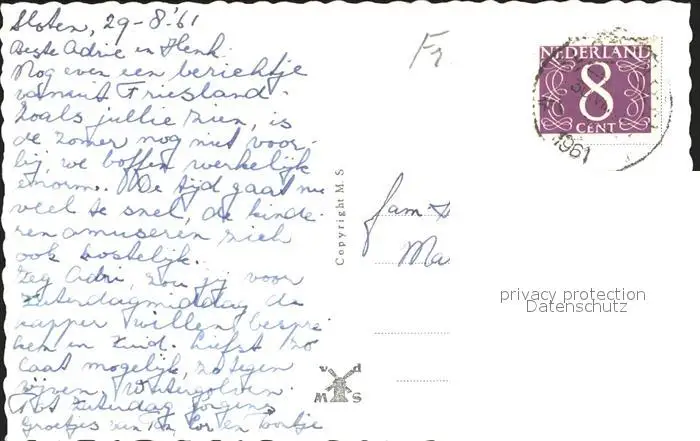 Sloten, 29-8-'61
Beste Adrie en Henk.
Nog even een berichtje
vanuit Friesland.
Zoals jullie zien, is
de zomer nog niet voor-
bij, we boffen werkelijk
enorm. De tijd gaat nu
veel te snel, de kinde-
ren amuseren zich
ook kostelijk.
Zeg Adri, zou jij voor
zaterdagmiddag de
kapper willen bespre
ken in Zuid. Liefst zo
laat mogelijk, zo tegen
vijven, watergolven.
Tot zaterdag
Groetjes van Ton, Cor en Toortje
Fr.
NEDERLAND
8
CENT
1961
Copyright M.S
fam
Ma
privacy protection
Datenschutz
v d
M S